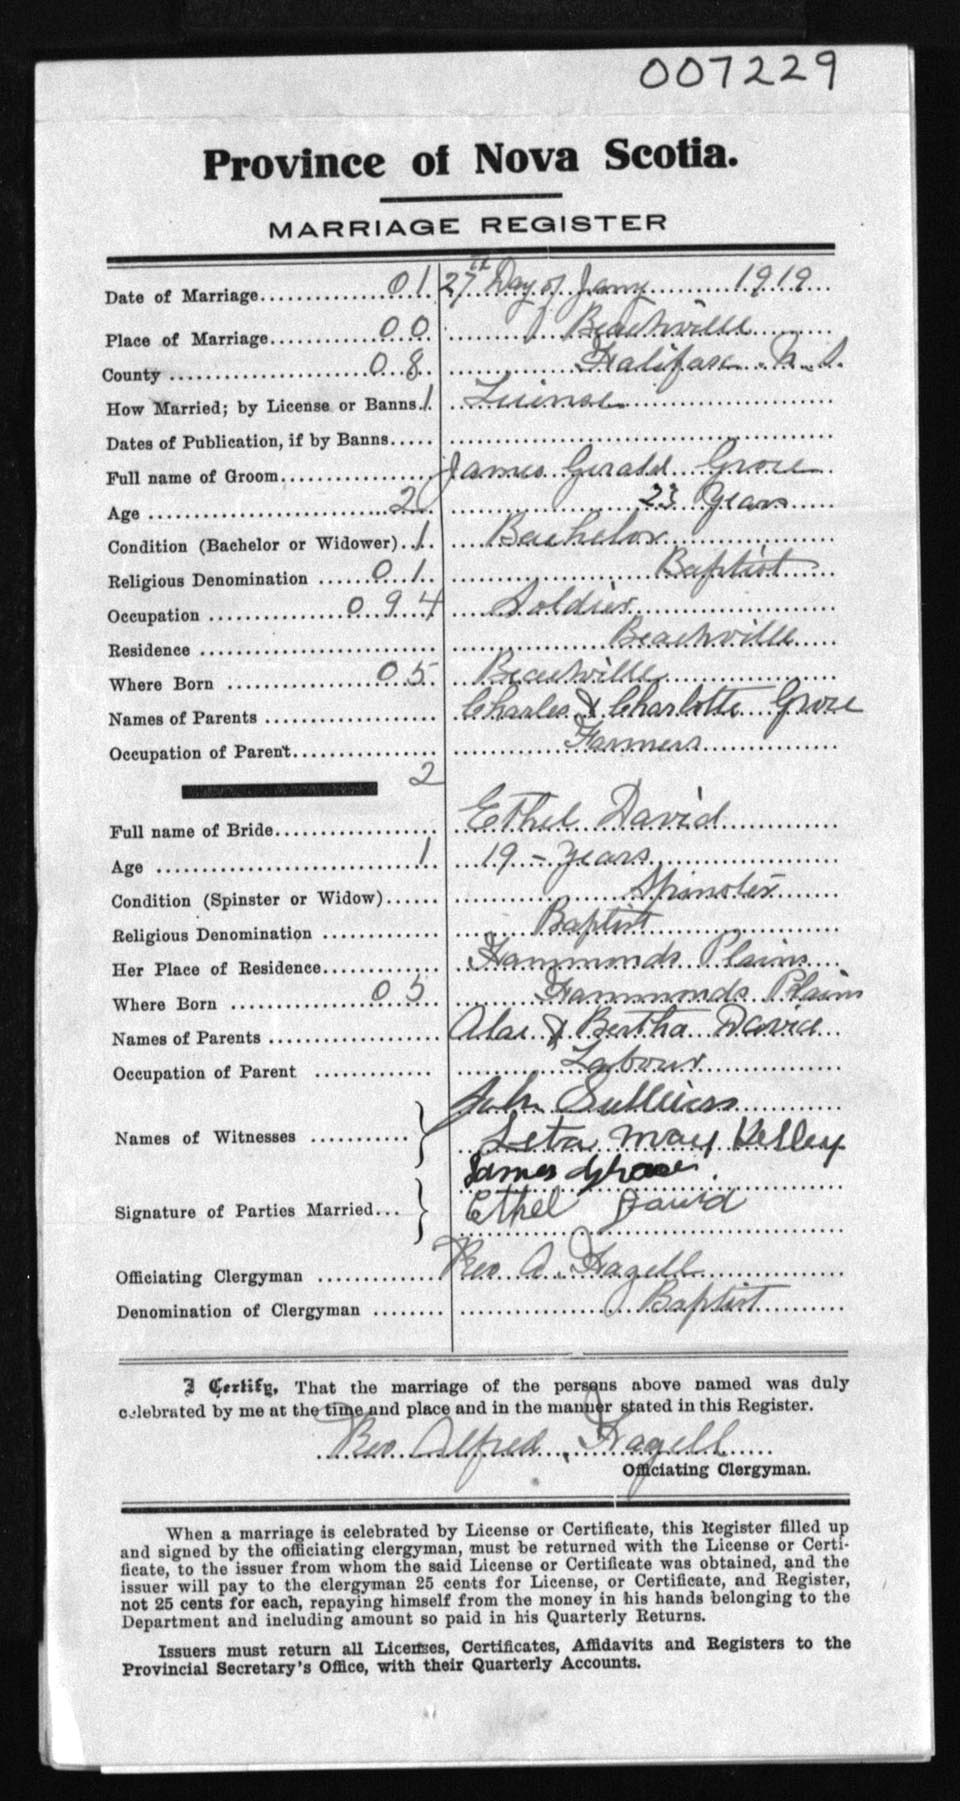 007229
Province of Nova Scotia.
MARRIAGE REGISTER
Date of Marriage 01 27th Day of Jany 1919
Place of Marriage 00 Beachville
County 08 Halifax N.S.
How Married; by License or Banns 1 License
Dates of Publication, if by Banns
Full name of Groom James Gerald
Age 2 23 Years
Condition (Bachelor or Widower) 1 Bachelor
Religious Denomination 01 Baptist
Occupation 094 Soldier
Residence Beachville
Where Born 05 Beachville
Names of Parents Charles & Charlotte
Occupation of Parent Farmers
2
Full name of Bride Ethel David
Age 1 19 - years
Condition (Spinster or Widow) Spinster
Religious Denomination Baptist
Her Place of Residence Hammonds Plains
Where Born 05 Hammonds Plains
Names of Parents & Bertha David
Occupation of Parent Labour
John
Names of Witnesses Leta May Kelley
James
Signature of Parties Married Ethel David
Officiating Clergyman Rev A. Hagell
Denomination of Clergyman Baptist
I Certify, That the marriage of the persons above named was duly
celebrated by me at the time and place and in the manner stated in this Register.
Rev Alfred Hagell
Officiating Clergyman.
When a marriage is celebrated by License or Certificate, this Register filled up
and signed by the officiating clergyman, must be returned with the License or Certi-
ficate, to the issuer from whom the said License or Certificate was obtained, and the
issuer will pay to the clergyman 25 cents for License, or Certificate, and Register,
not 25 cents for each, repaying himself from the money in his hands belonging to the
Department and including amount so paid in his Quarterly Returns.
Issuers must return all Licenses, Certificates, Affidavits and Registers to the
Provincial Secretary's Office, with their Quarterly Accounts.